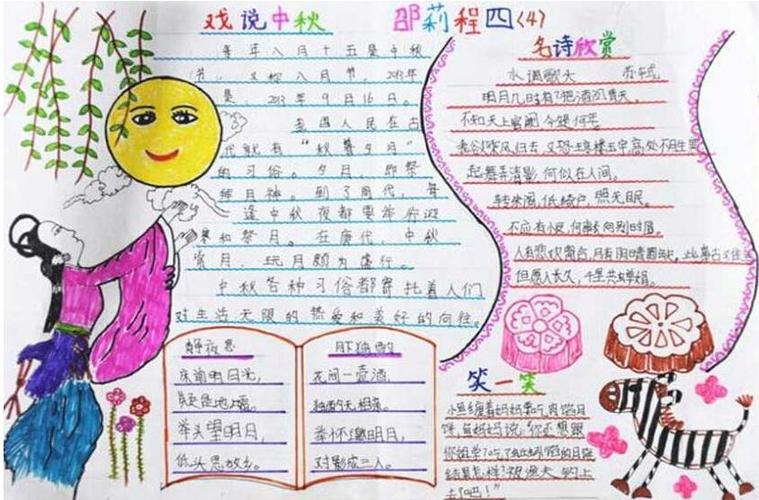 戏说中秋
邵莉程四〈4〉
每年八月十五是中秋
节，又称八月节，2013年
是 2013年9月16日。
我国人民在古
代就有“秋暮夕月”
的习俗。夕月，即祭
拜月神。到了周代，每
逢中秋夜都要举行迎
寒和祭月。在唐代，中秋
赏月、玩月颇为盛行。
中秋各种习俗都寄托着人们
对生活无限的热爱和美好的向往。
静夜思
床前明月光，
疑是地上霜。
举头望明月，
低头思故乡。
月下独酌
花间一壶酒，
独酌无相亲。
举杯邀明月，
对影成三人。
名诗欣赏
水调歌头 苏轼
明月几时有？把酒问青天。
不知天上宫阙，今夕是何年
我欲乘风归去，又恐琼楼玉宇，高处不胜寒
起舞弄清影，何似在人间。
转朱阁，低绮户，照无眠。
不应有恨，何事长向别时圆
人有悲欢离合，月有阴晴圆缺，此事古难全
但愿人长久，千里共婵娟。
笑一笑
小鱼缠着妈妈要吃肉馅月
饼，鱼妈妈说：你还想跟
你姐学
结果怎样？被渔夫钓上
去了吧！”